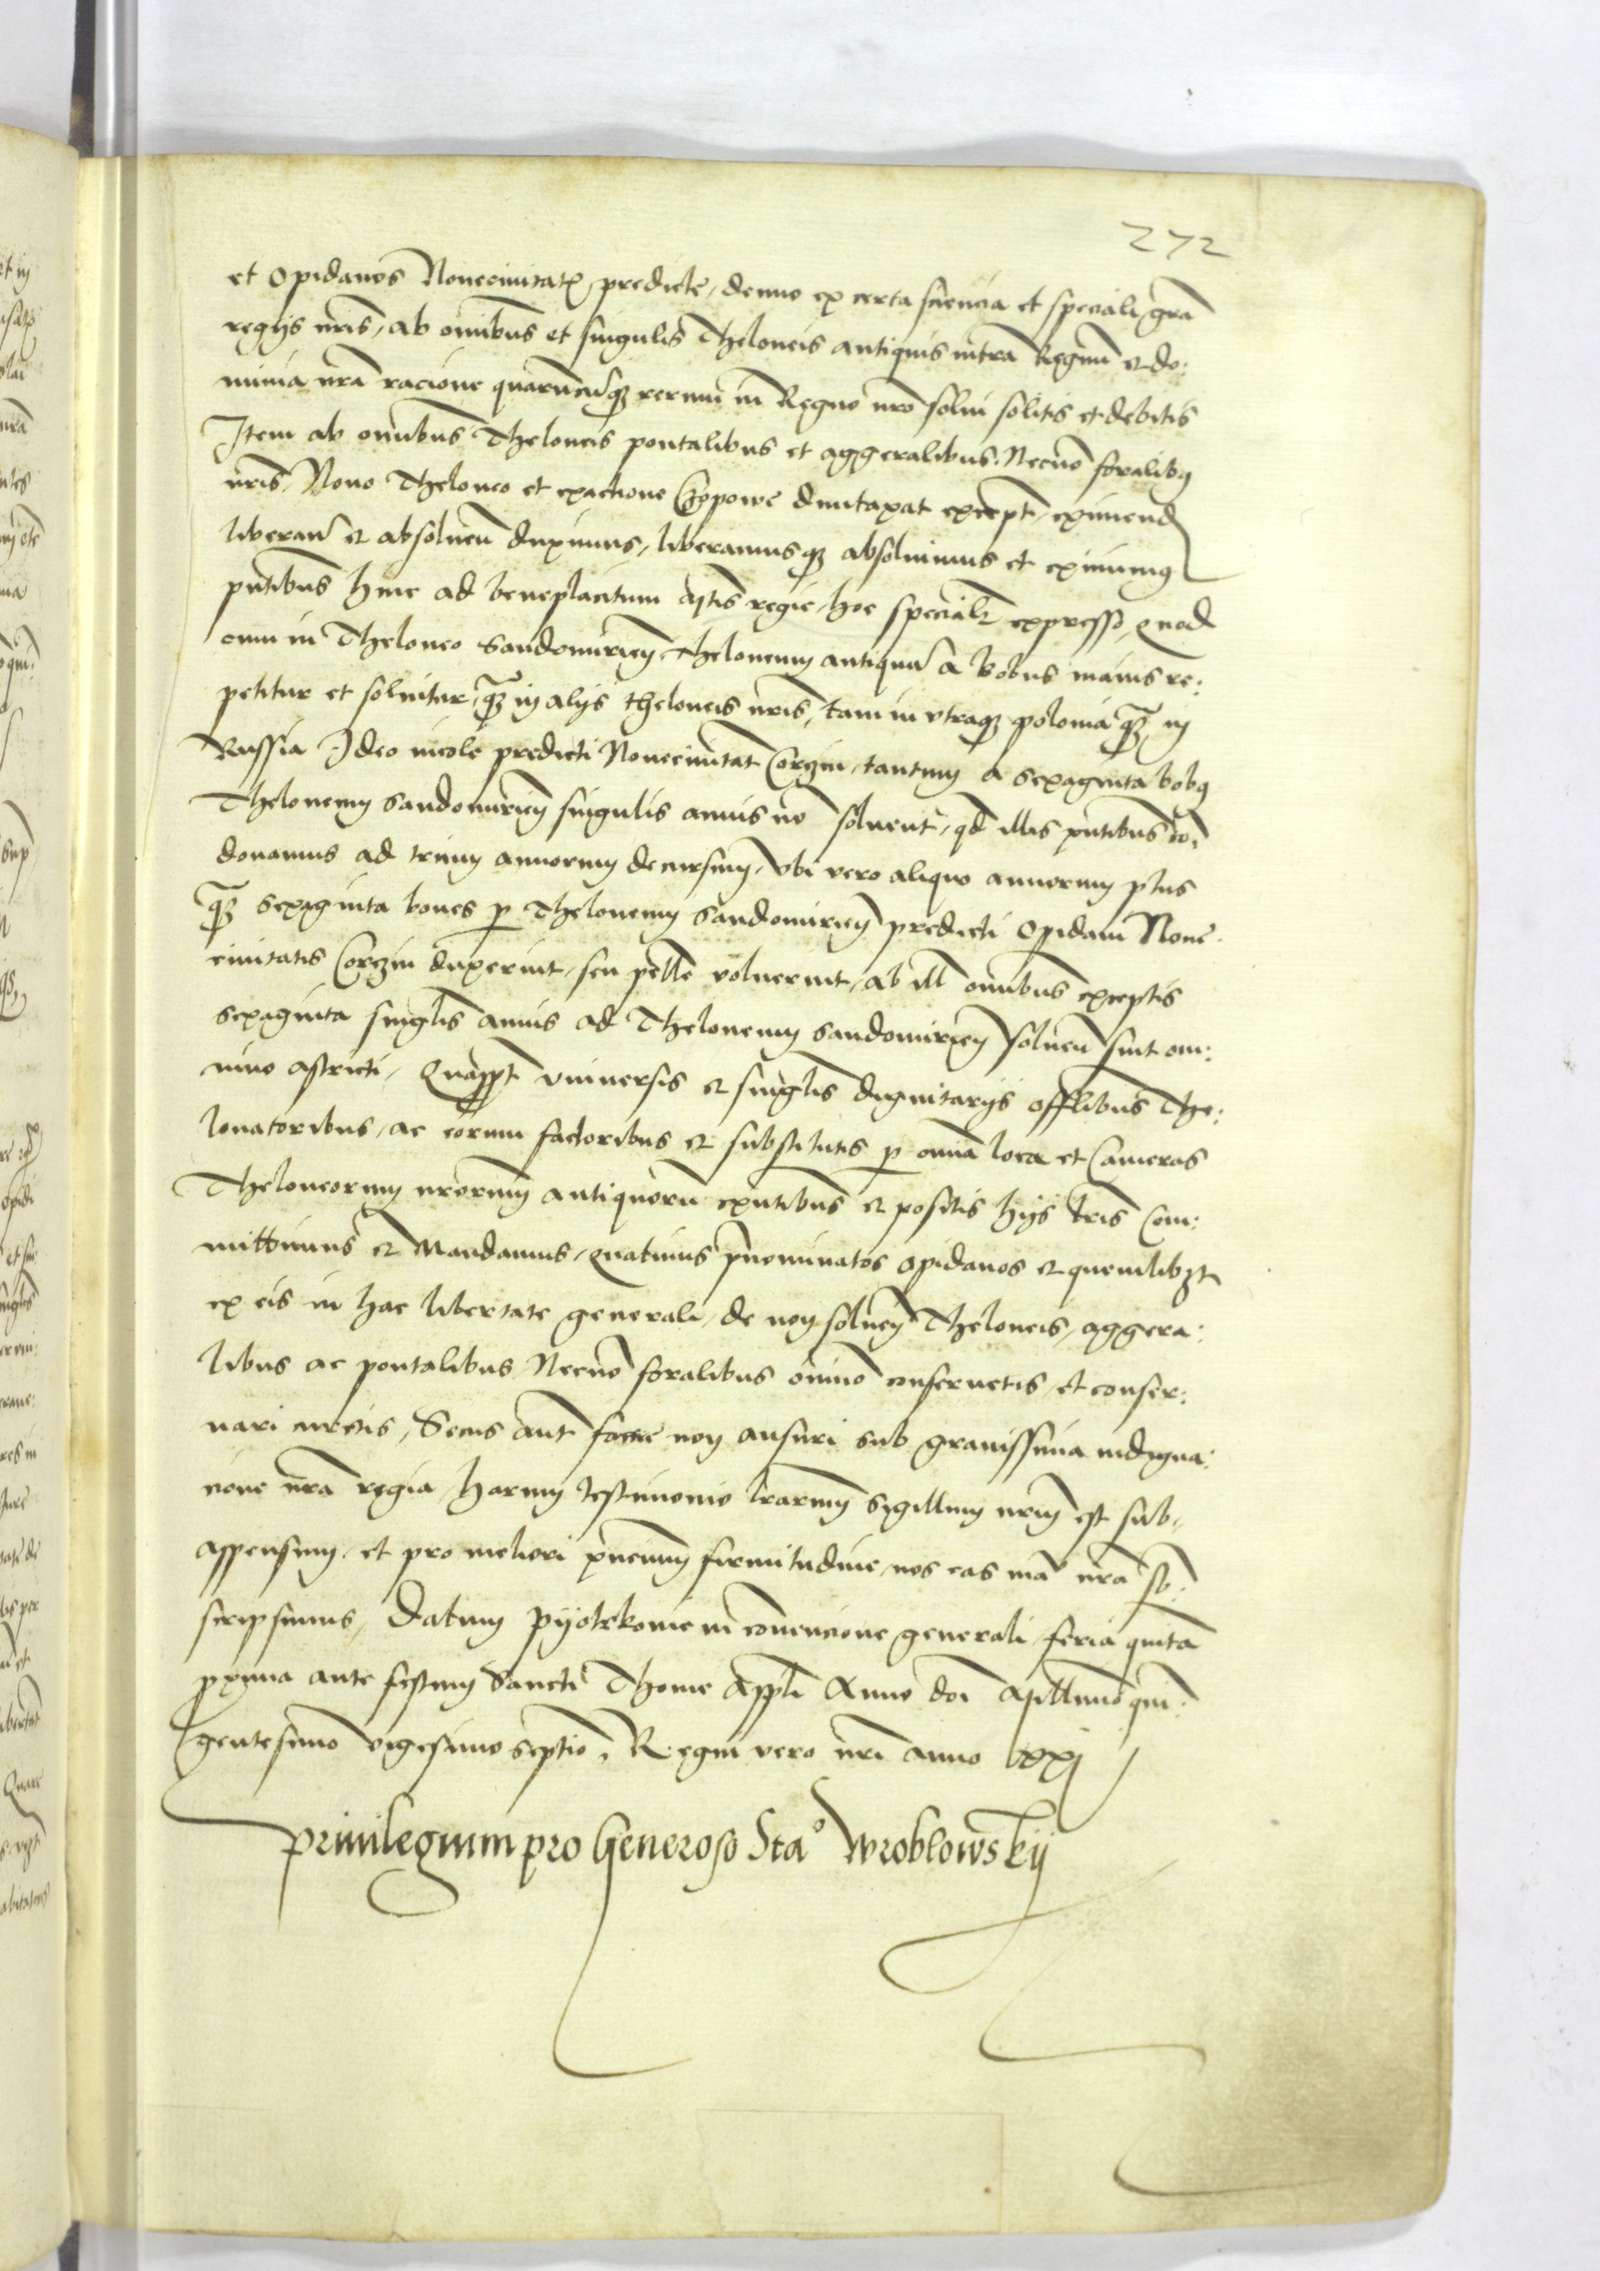 272
et Opidanos Nouecivitatis predicte, denuo ex certa sciencia et speciali gra
regijs nris, ab omibus et singulis Theloneis antiquis intra Regnu et do:
minia nra racione quarucuqz rerum in Regno nro solui solitis et debitis
Item ab omibus Theloneis pontalibus et aggeralibus. Necno foralibus
nris, Nouo Theloneo et exactione Czopowe duntaxat except, eximend
liberan et absoluen duximus, liberamusqz absoluimus et eximimus
pntibus hinc ad beneplacitum Mtis regie, hoc specialr expresso, quod
cum in Theloneo Sandomirien Theloneum antiquu a bobus maius re:
petitur et soluitur, qz in alijs theloneis nris, tam in vtraqz polonia qz in
Russia Ideo incole predicti Nouecivitat Corczin, tantum a sexaginta bobus
Theloneum Sandomirien singulis annis no soluent, qd illis pntibus con
donamus ad trium annorum decursum, Vbi vero aliquo annorum plus
qz sexaginta boues p Theloneum Sandomirien predicti Opidani Noue
ciuitatis Corczin duxerint, seu pelle voluerint, ab ill omibus exceptis
sexaginta singlis annis ad Theloneum Sandomirien soluen sint om:
nino astricti, Quappt vniuersis et singlis dignitarijs offlibus The:
lonatoribus, ac eorum factoribus et substitutis p omia loca et Cameras
Theloneorum nrorum antiquoru exntibus et positis hijs lris Com:
mittimus et Mandamus, Quatinus pnominatos opidanos et quemlibzt
ex eis in hac libertate generali, de non soluen Theloneis, aggera:
libus ac pontalibus Necno foralibus omino conseruetis, et conser:
uari curetis, Secus aut facere non ausuri sub grauissima indigna:
cione nra regia, harum testimonio lrarum Sigillum nrum est sub
appensum, et pro meliori pncium firmitudine, nos eas ma nra sb:
scripsimus, Datum Pyotrkouie in conuencione generali, feria quita
pxima ante festum Sancti Thome Appli Anno doi Millimo quin:
gentesimo vigesimo septio, Regni vero nri anno xxj
Priuilegium pro Generoso Sta° Wroblowskij